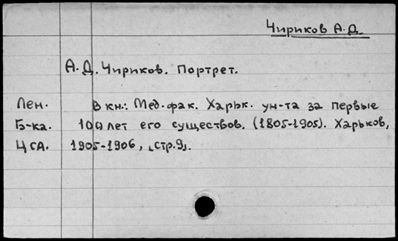 Чириков А.Д.
А.Д. Чириков. Портрет.
Лен. В кн.: Мед. фак. Харьк. ун-та за первые
Б-ка. 100 лет его существов. (1805-1905). Харьков,
ЦГА. 1905-1906, [стр.9].